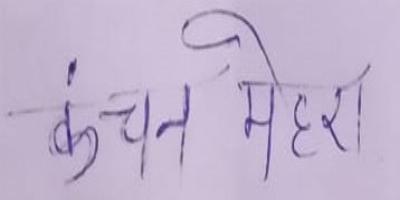 कंचन मेहरा